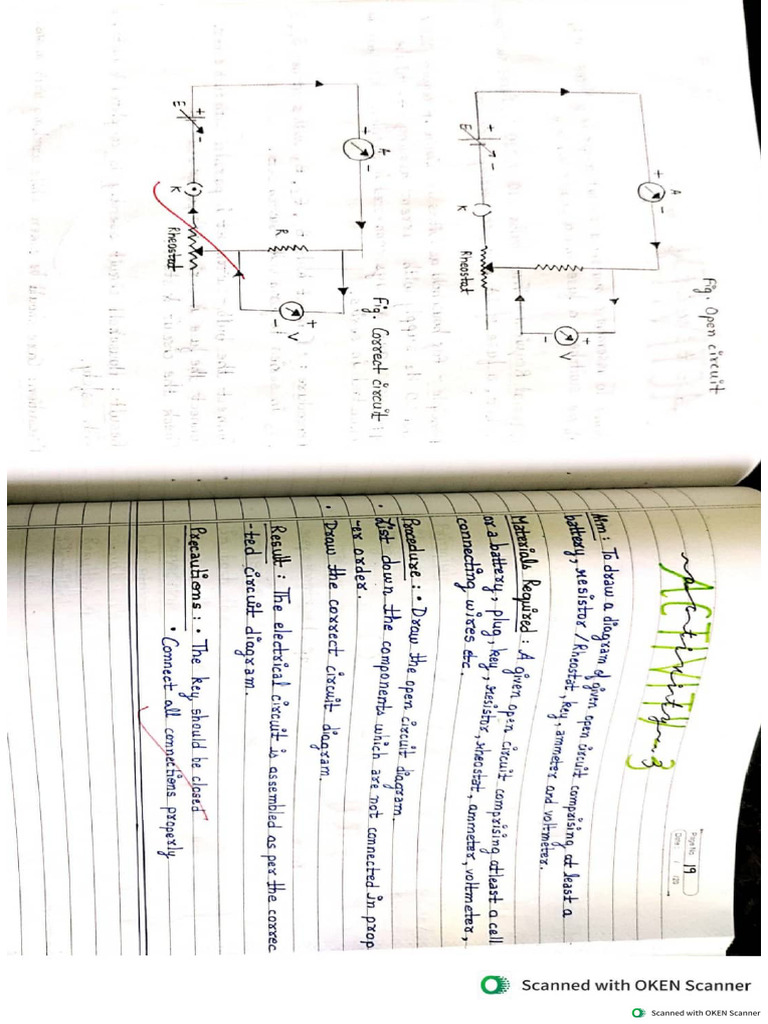 Fig. Open circuit
A
+
-
E
+
-
K
Rheostat
+
-
V
Fig. Correct circuit
A
+
-
E
+
-
K
Rheostat
R
+
-
V
Page No. 19
Date: / /20
ACTIVITY
Activity-3
Aim: To draw a diagram of given open circuit comprising at least a
battery, resistor / Rheostat, key, ammeter and voltmeter.
Materials Required: A given open circuit comprising atleast a cell
or a battery, plug, key, resistor, rheostat, ammeter, voltmeter,
connecting wires etc.
Procedure: • Draw the open circuit diagram.
• List down the components which are not connected in prop
-er order.
• Draw the correct circuit diagram.
Result: The electrical circuit is assembled as per the correc
-ted circuit diagram.
Precautions: • The key should be closed
• Connect all connections properly
Scanned with OKEN Scanner
Scanned with OKEN Scanner